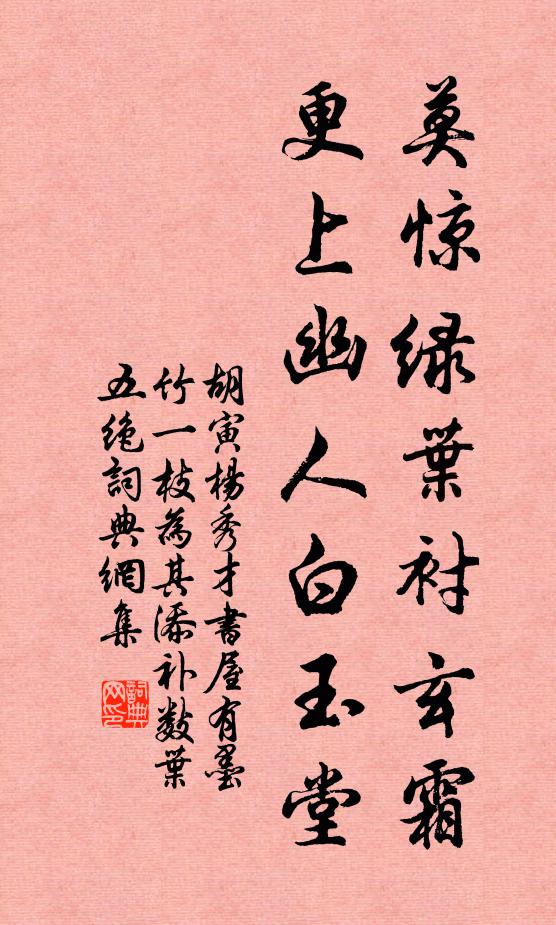 莫惊绿葉衬玄霜
更上幽人白玉堂
胡寅楊秀才書屋有墨
竹一枝為其添补数葉
五绝詞典網集
詞典网印